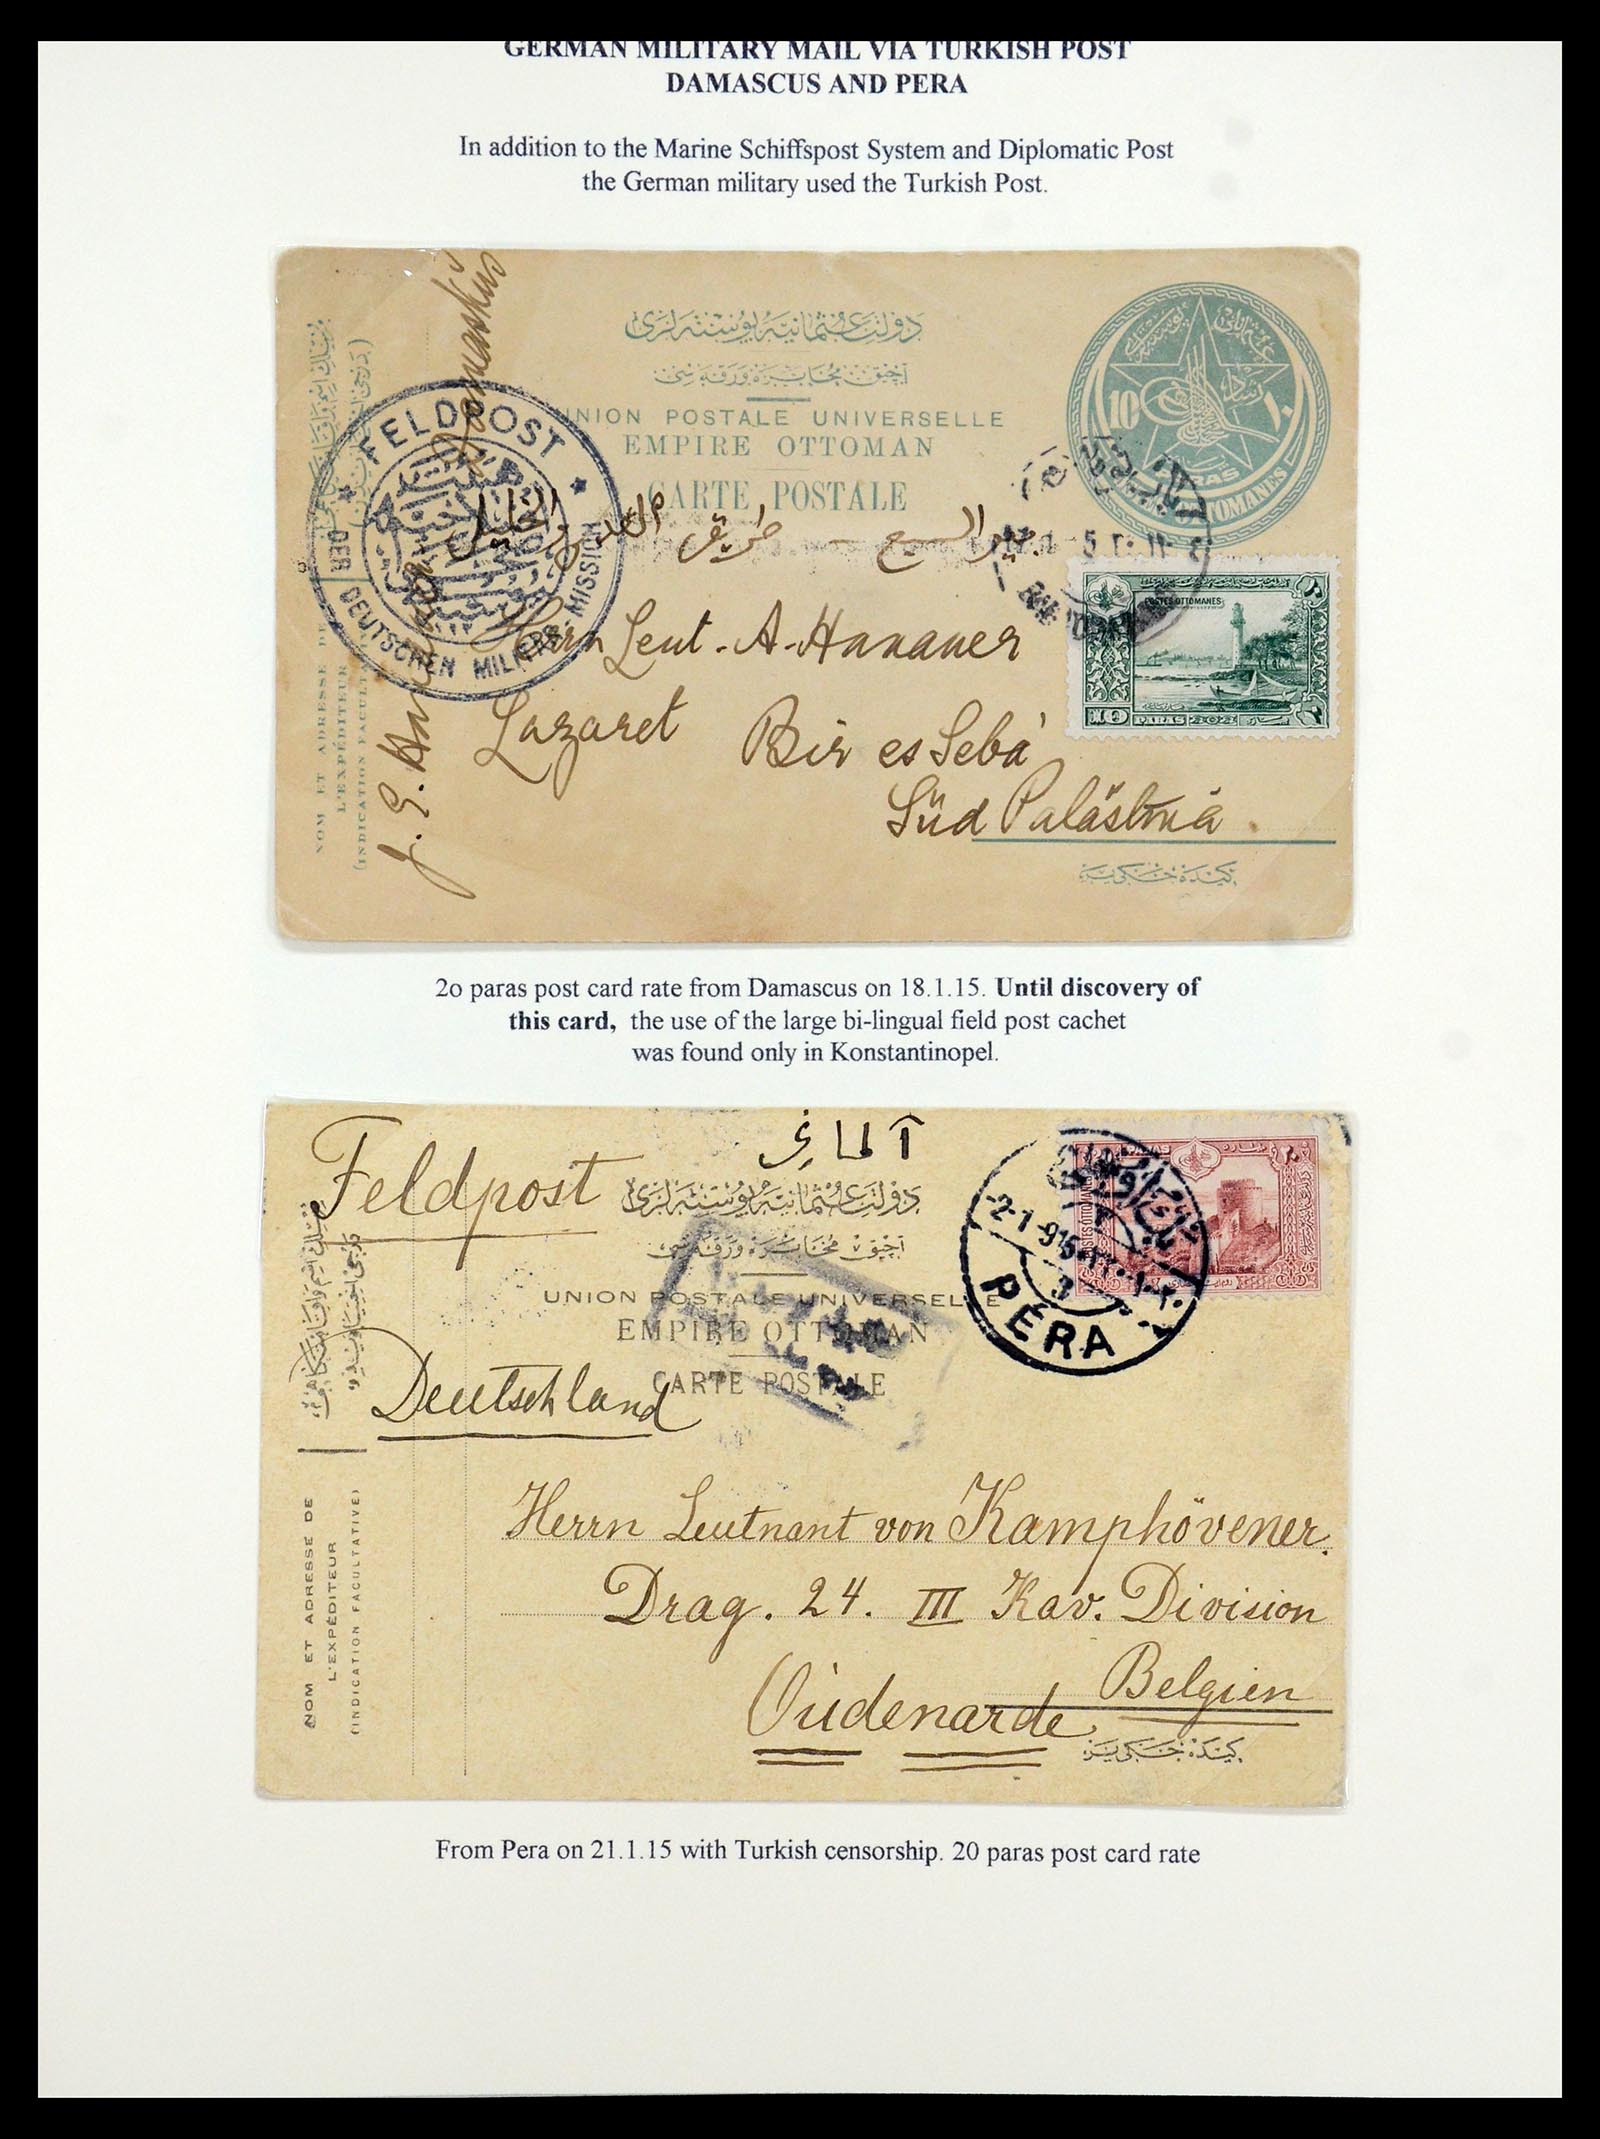 GERMAN MILITARY MAIL VIA TURKISH POST
DAMASCUS AND PERA
In addition to the Marine Schiffspost System and Diplomatic Post
the German military used the Turkish Post.
دولت عثمانیه پوسته‌لری
آچیق مخابره ورقه‌سی
UNION POSTALE UNIVERSELLE
EMPIRE OTTOMAN
CARTE POSTALE
10 ١٠
PARAS
POSTES OTTOMANES
FELDPOST
DER DEUTSCHEN MILITÄR-MISSION
بير السبع - طريق القدس والخليل
Herrn Leut. A. Hanauer
Lazaret Bir es Sebá
Süd Palästina
10 PARAS
NOM ET ADRESSE DE
L'EXPÉDITEUR
(INDICATION FACULT
J. E. Han Damaskus
2o paras post card rate from Damascus on 18.1.15. Until discovery of
this card, the use of the large bi-lingual field post cachet
was found only in Konstantinopel.
Feldpost
آلمانی
دولت عثمانیه پوسته‌لری
آچیق مخابره ورقه‌سی
UNION POSTALE UNIVERSELLE
EMPIRE OTTOMAN
CARTE POSTALE
PÉRA
3
POSTES OTTOMANES
Deutschland
Herrn Leutnant von Kamphövener.
Drag. 24. III Kav. Division
Oudenarde Belgien
NOM ET ADRESSE DE
L'EXPÉDITEUR
(INDICATION FACULTATIVE)
From Pera on 21.1.15 with Turkish censorship. 20 paras post card rate